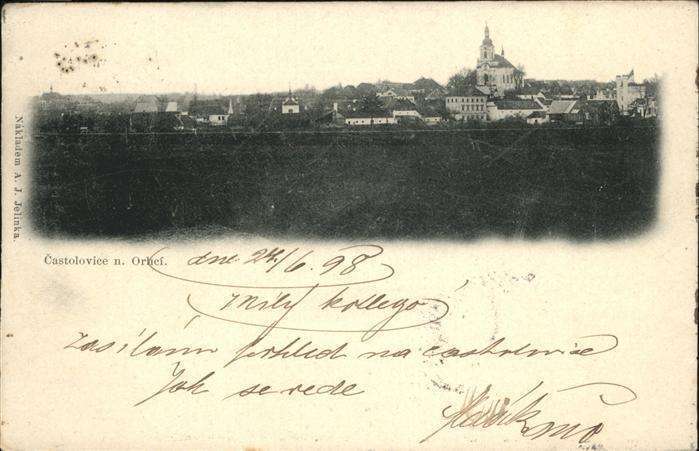 Nákladem A. J. Jelínka
Častolovice n. Orlicí.
dne 24/6. 98
Milý kollego
Zasílám pohled na častolovice
Jak se vede